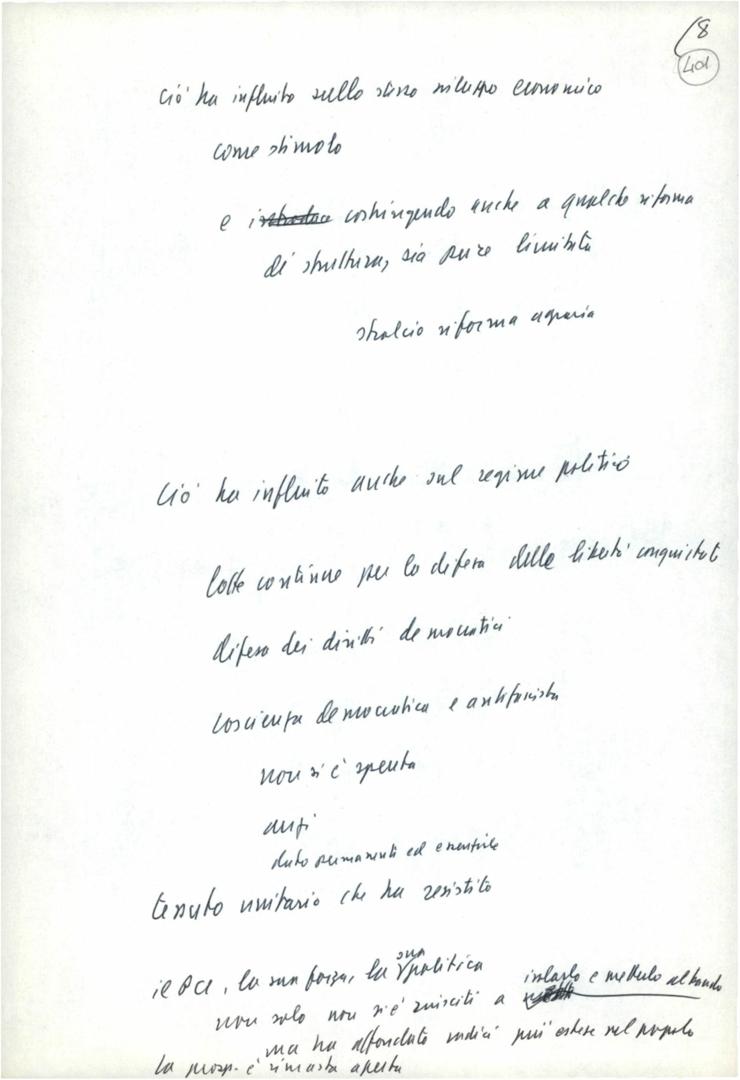 8
401
Ciò ha influito sullo stesso sviluppo economico
come stimolo
e costringendo anche a qualche riforma
di struttura, sia pure limitata
stralcio riforma agraria
Ciò ha influito anche sul regime politico
lotte continue per la difesa delle libertà conquistate
difesa dei diritti democratici
coscienza democratica e antifascista
non si è spenta
anzi
dato permanente ed essenziale
tessuto unitario che ha resistito
il PCI, la sua forza, la sua politica
non solo non si è riusciti a isolarlo e metterlo al bando
ma ha affondato radici più estese nel popolo
la prosp. è rimasta aperta